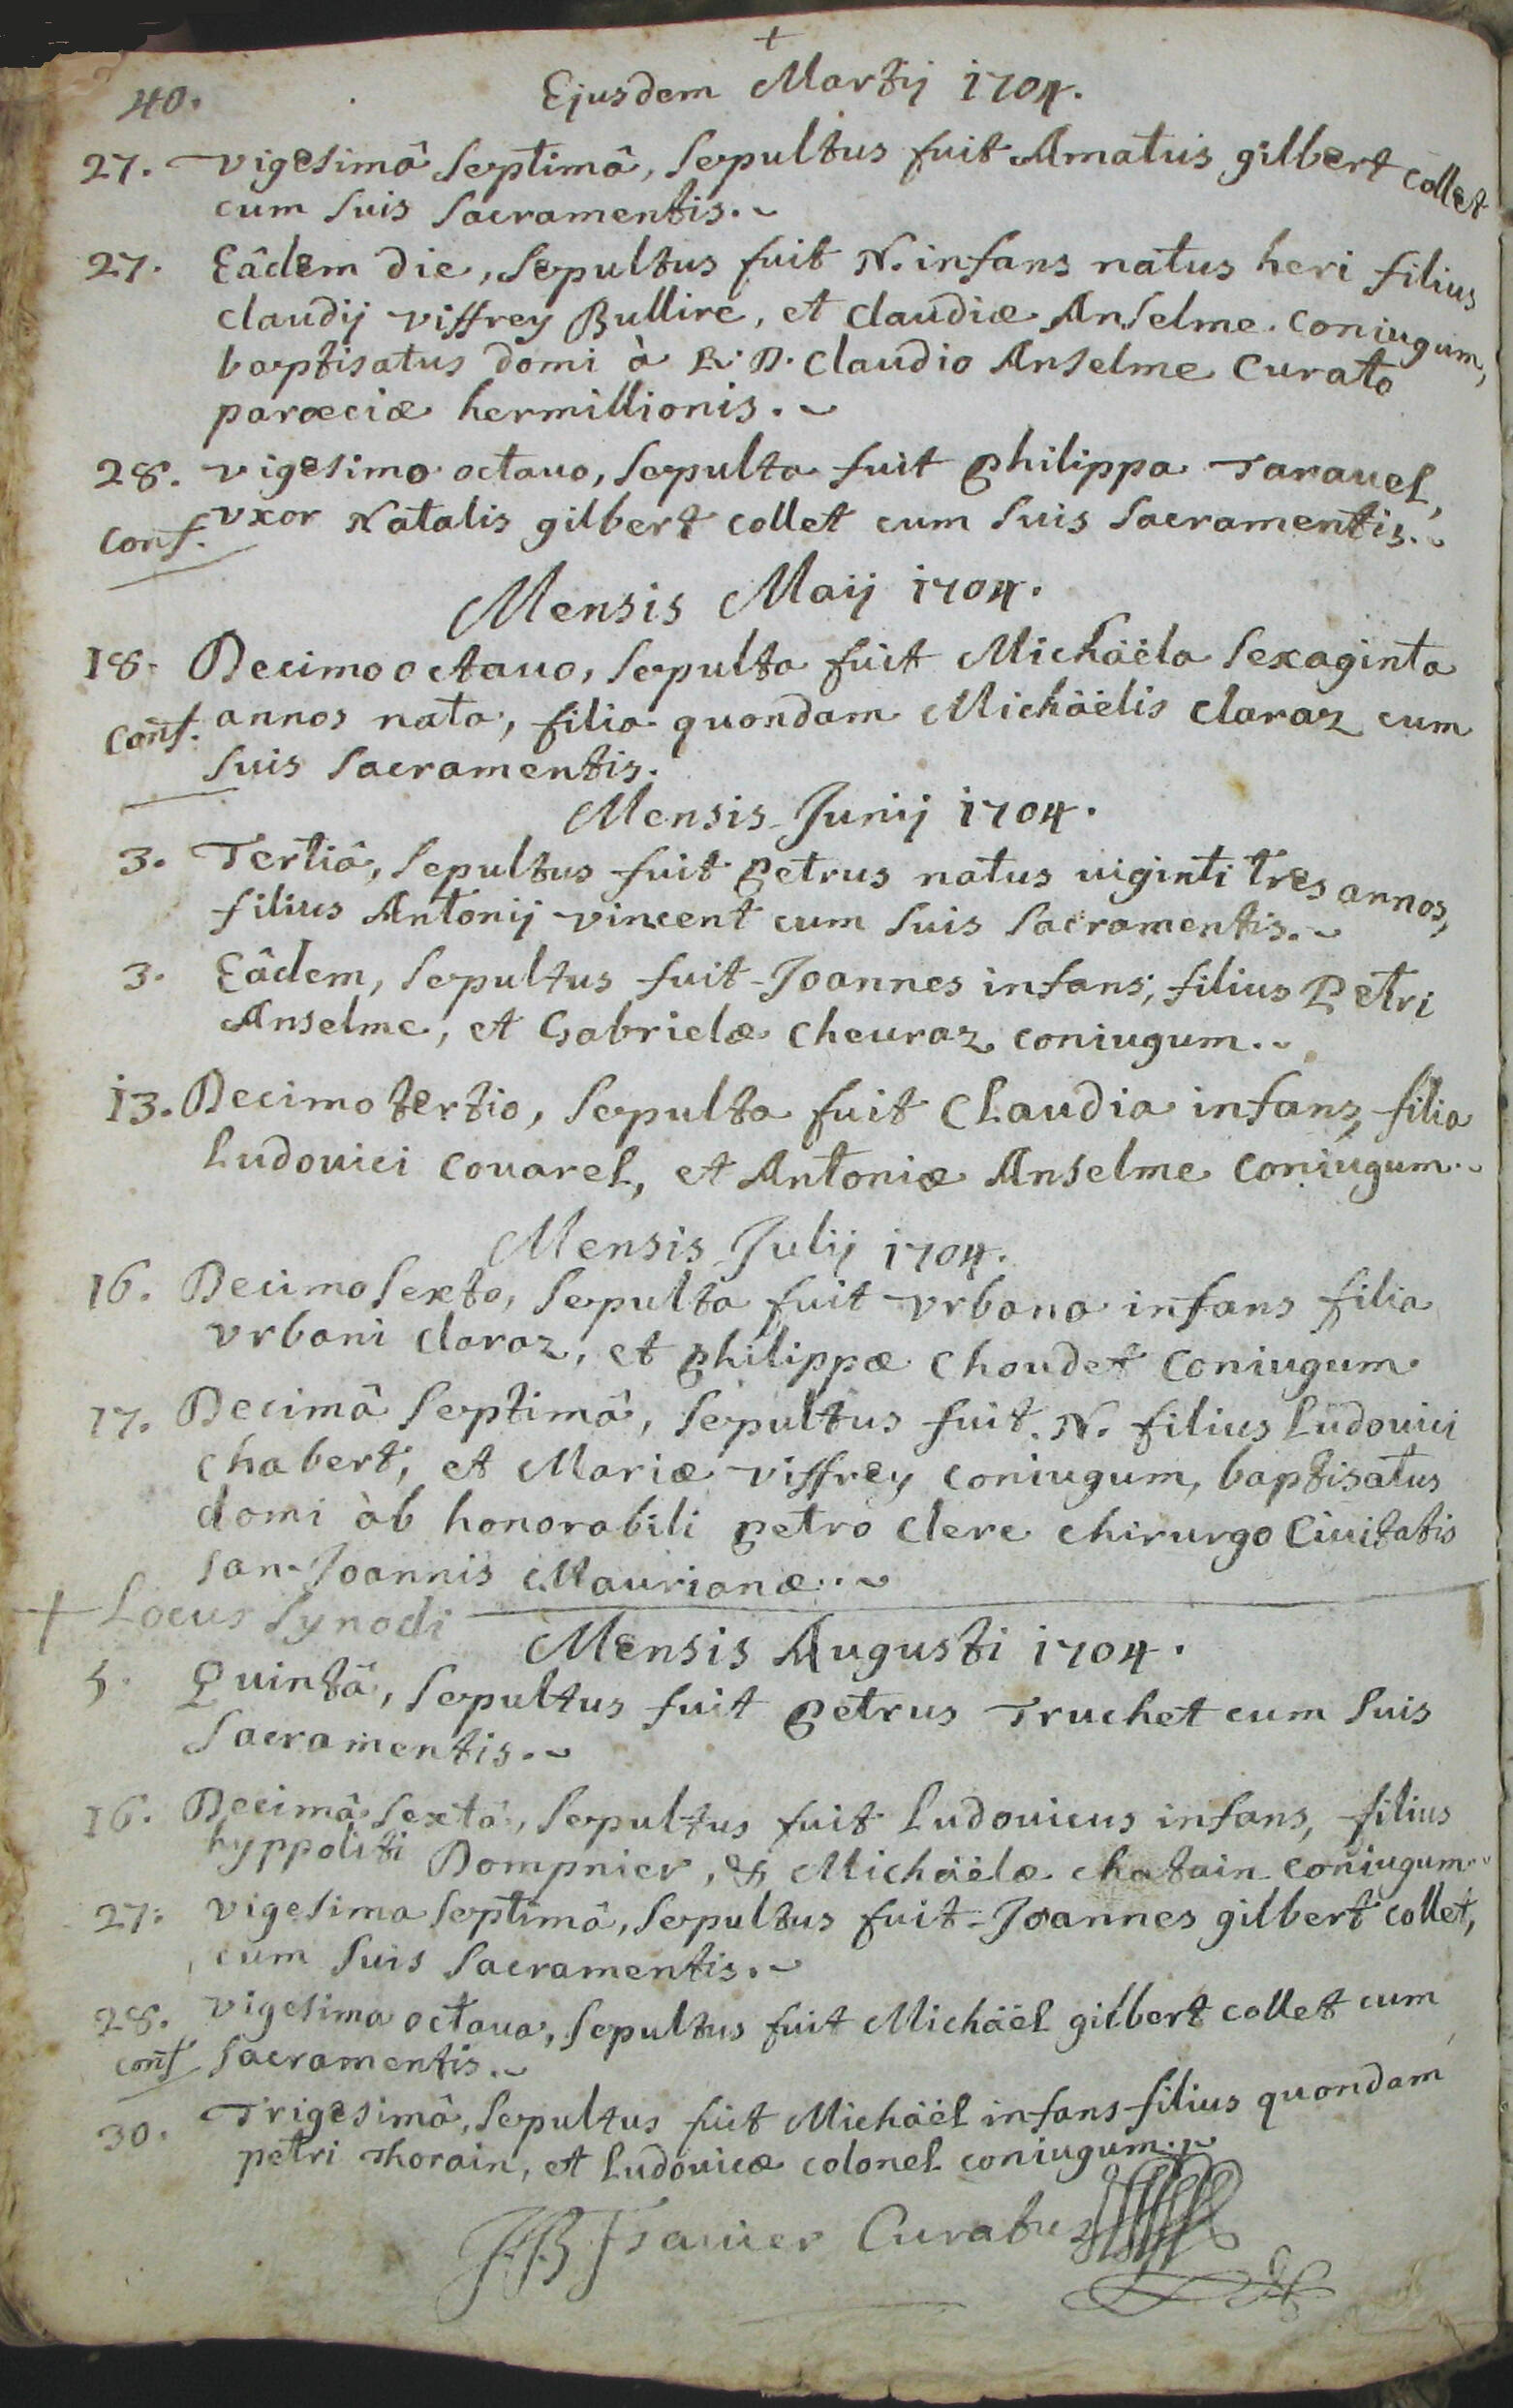 +
40. Ejusdem Martij 1704.
27. vigesimâ septimâ, sepultus fuit Amatus gilbert collet
cum suis sacramentis.
27. Eâdem die, sepultus fuit N. infans natus heri filius
claudij viffrey Bullire, et claudiæ Anselme coniugum,
baptisatus domi à R. D. claudio Anselme curato
parœciæ hermillionis.
28. vigesimo octavo, sepulta fuit philippa Taravel,
conf. vxor Natalis gilbert collet cum suis sacramentis.
Mensis Maij 1704.
18. Decimo octauo, sepulta fuit Michäëla sexaginta
conf. annos nata, filia quondam Michäëlis claraz cum
suis sacramentis.
Mensis Junij 1704.
3. Tertiâ, sepultus fuit petrus natus uiginti tres annos,
filius Antonij vincent cum suis sacramentis.
3. Eâdem, sepultus fuit Joannes infans, filius Petri
Anselme, et Gabrielæ cheuraz coniugum.
13. Decimo tertio, sepulta fuit Claudia infans, filia
Ludouici couarel, et Antoniæ Anselme coniugum.
Mensis Julij 1704.
16. Decimo sexto, sepulta fuit vrbana infans filia
vrbani claraz, et philippæ choudet coniugum
17. Decimâ septimâ, sepultus fuit N. filius Ludouici
chabert, et Mariæ viffrey coniugum, baptisatus
domi àb honorabili petro clere chirurgo ciuitatis
san-Joannis Maurianæ.
+ Locus synodi
Mensis Augusti 1704.
5. Quintâ, sepultus fuit petrus Truchet cum suis
sacramentis.
16. Decimâ sextâ, sepultus fuit Ludouicus infans, filius
hyppoliti Dompnier, & Michäëlæ chatain coniugum
27. vigesima septimâ, sepultus fuit Joannes gilbert collet,
cum suis sacramentis.
28. vigesima octaua, sepultus fuit Michäël gilbert collet cum
conf sacramentis.
30. Trigesimâ, sepultus fuit Michäël infans filius quondam
petri Thorain, et Ludouicæ colonel coniugum.
Curatus